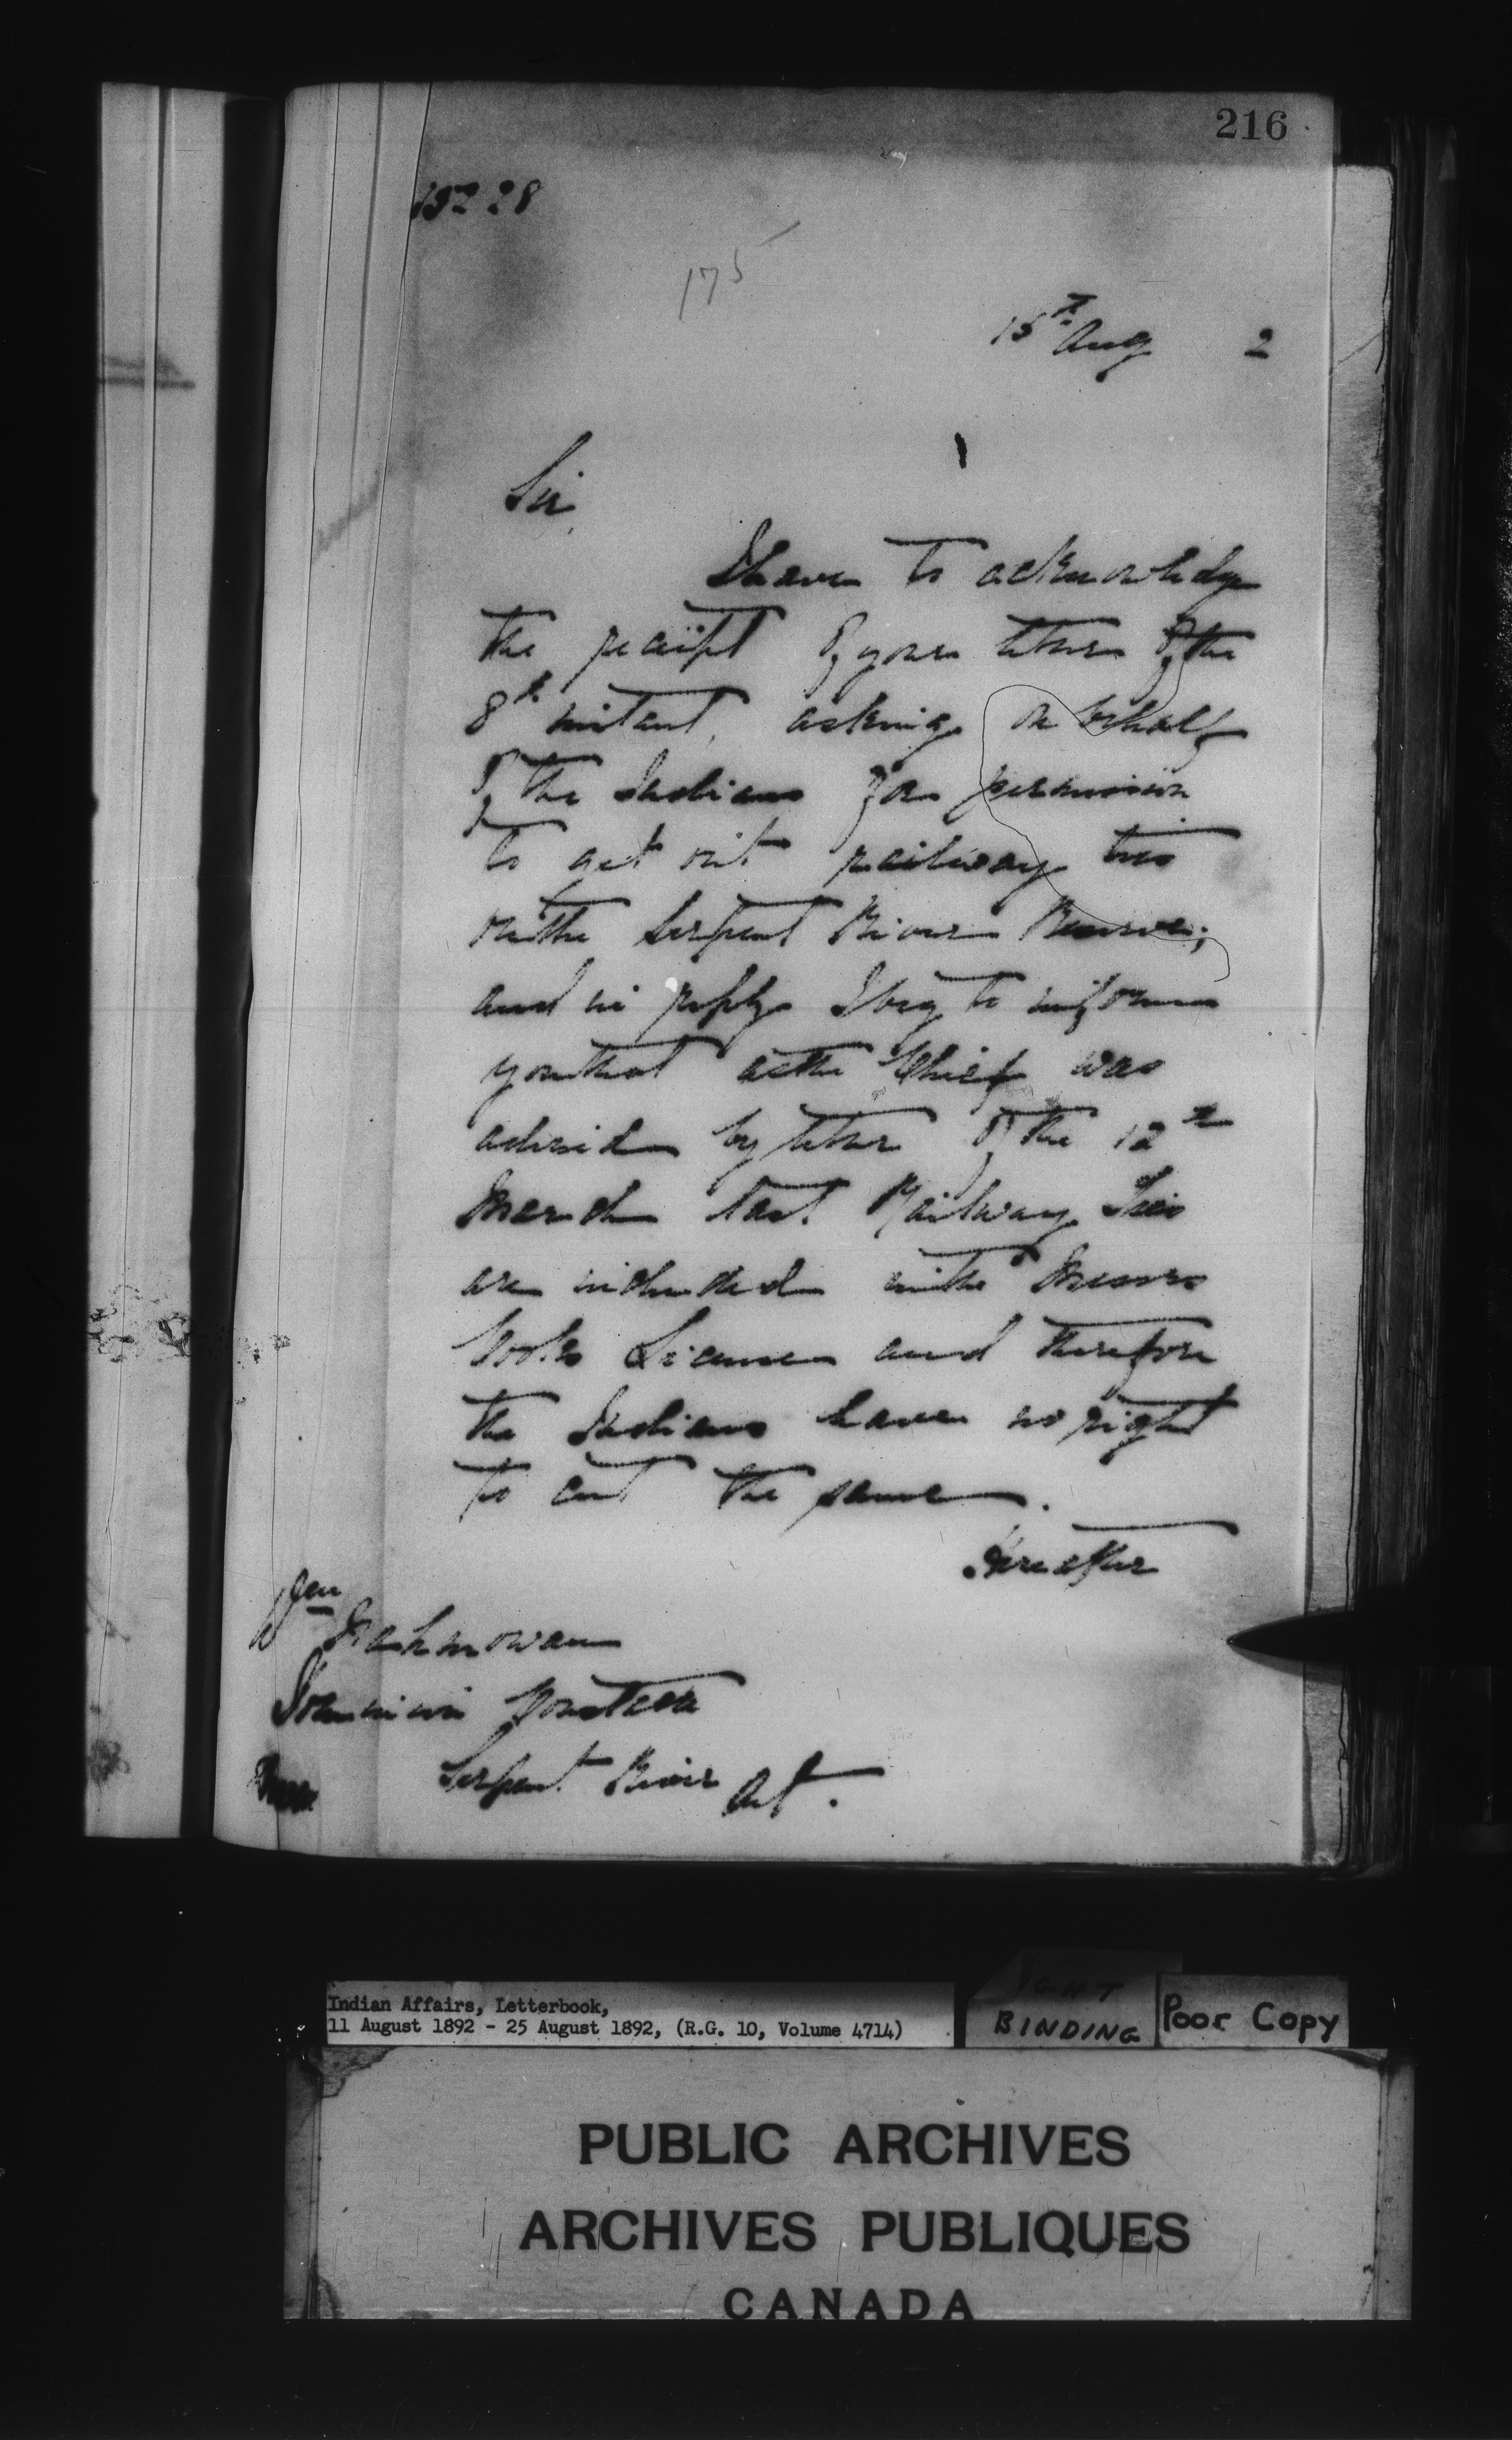 216
175
15th Aug 2
Sir,
I have to acknowledge
the receipt of your letter of the
8th instant, asking on behalf
of the Indians for permission
to get out railway ties
on the Serpent River Reserve;
and in reply I beg to inform
you that as the Chief was
advised by letter of the 12th
March last Railway Ties
are included in the Messrs
License and therefore
the Indians have no right
to cut the same.
Serpent River Ont.
Indian Affairs, Letterbook,
11 August 1892 - 25 August 1892, (R.G. 10, Volume 4714)
BINDING
Poor Copy
PUBLIC ARCHIVES
ARCHIVES PUBLIQUES
CANADA